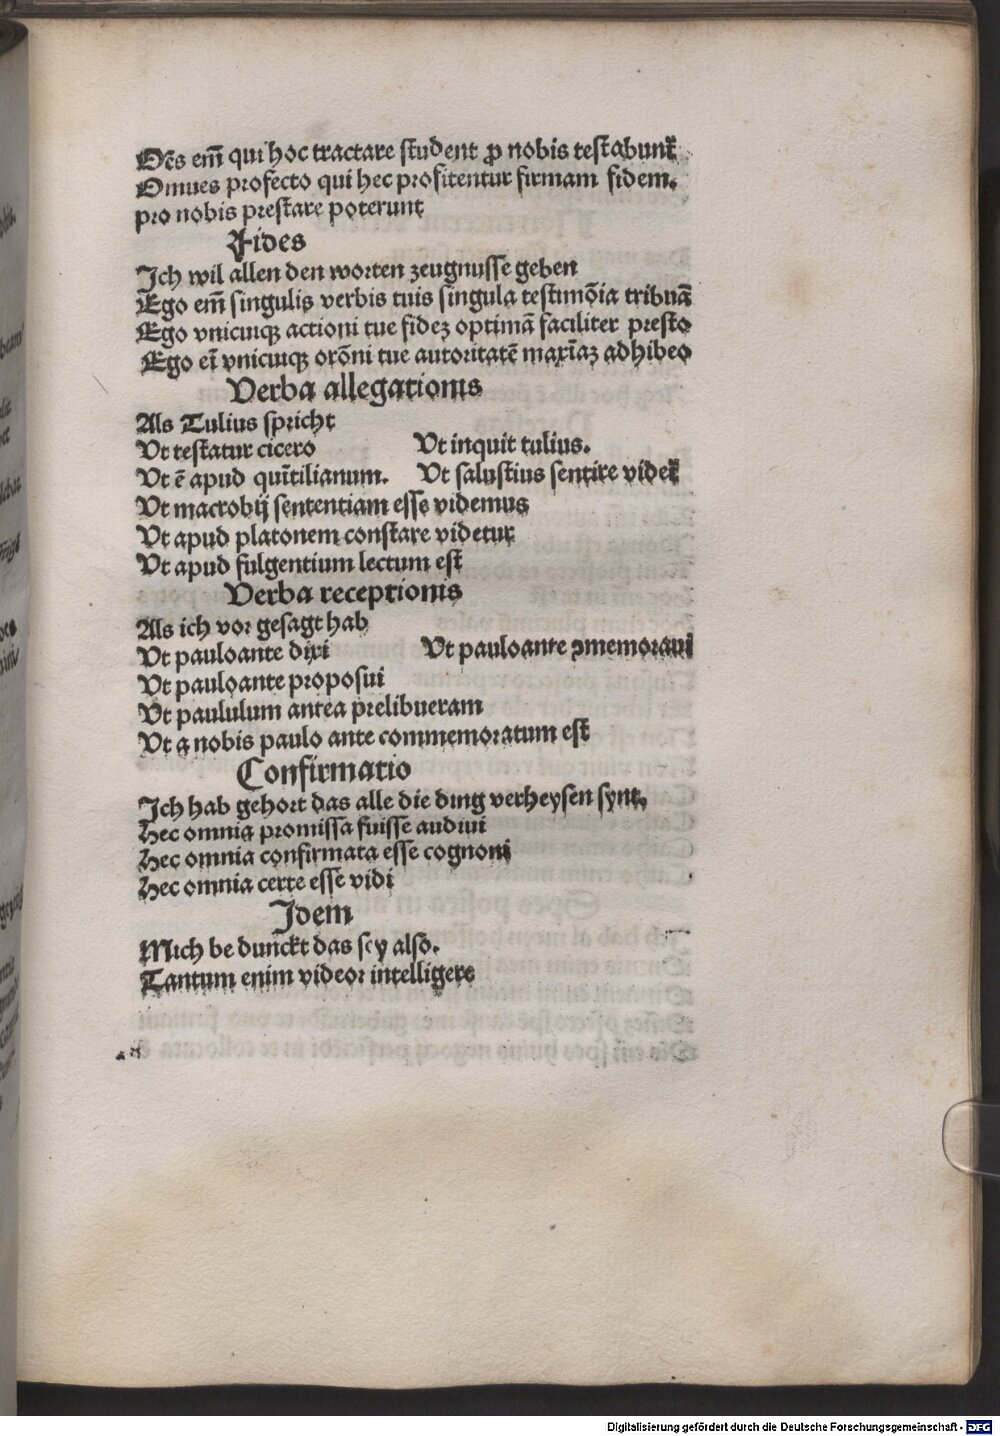 Oēs em̄ qui hoc tractare student ꝓ nobis testabunt᷑
Omnes profecto qui hec profitentur firmam fidem.
pro nobis prestare poterunt
Fides
Ich wil allen den worten zeugnusse geben
Ego em̄ singulis verbis tuis singula testimōia tribuā
Ego vnicuiqꝫ actioni tue fideꝫ optimā faciliter presto
Ego ei̅ vnicuiqꝫ orōni tue autoritatē maxīaꝫ adhibeo
Verba allegationis
Als Tulius spricht
Vt testatur cicero Vt inquit tulius.
Vt ē apud quītilianum. Vt salustius sentire videt᷑
Vt macrobij sententiam esse videmus
Vt apud platonem constare videtur
Vt apud fulgentium lectum est
Verba receptionis
Als ich vor gesagt hab
Vt pauloante dixi Vt pauloante ꝯmemoraui
Vt pauloante proposui
Vt paululum antea prelibueram
Vt a nobis paulo ante commemoratum est
Confirmatio
Ich hab gehort das alle die ding verheysen synt.
Hec omnia promissa fuisse audiui
Hec omnia confirmata esse cognoui
Hec omnia certe esse vidi
Idem
Mich be dunckt das sey also.
Tantum enim videor intelligere
Digitalisierung gefördert durch die Deutsche Forschungsgemeinschaft - DFG